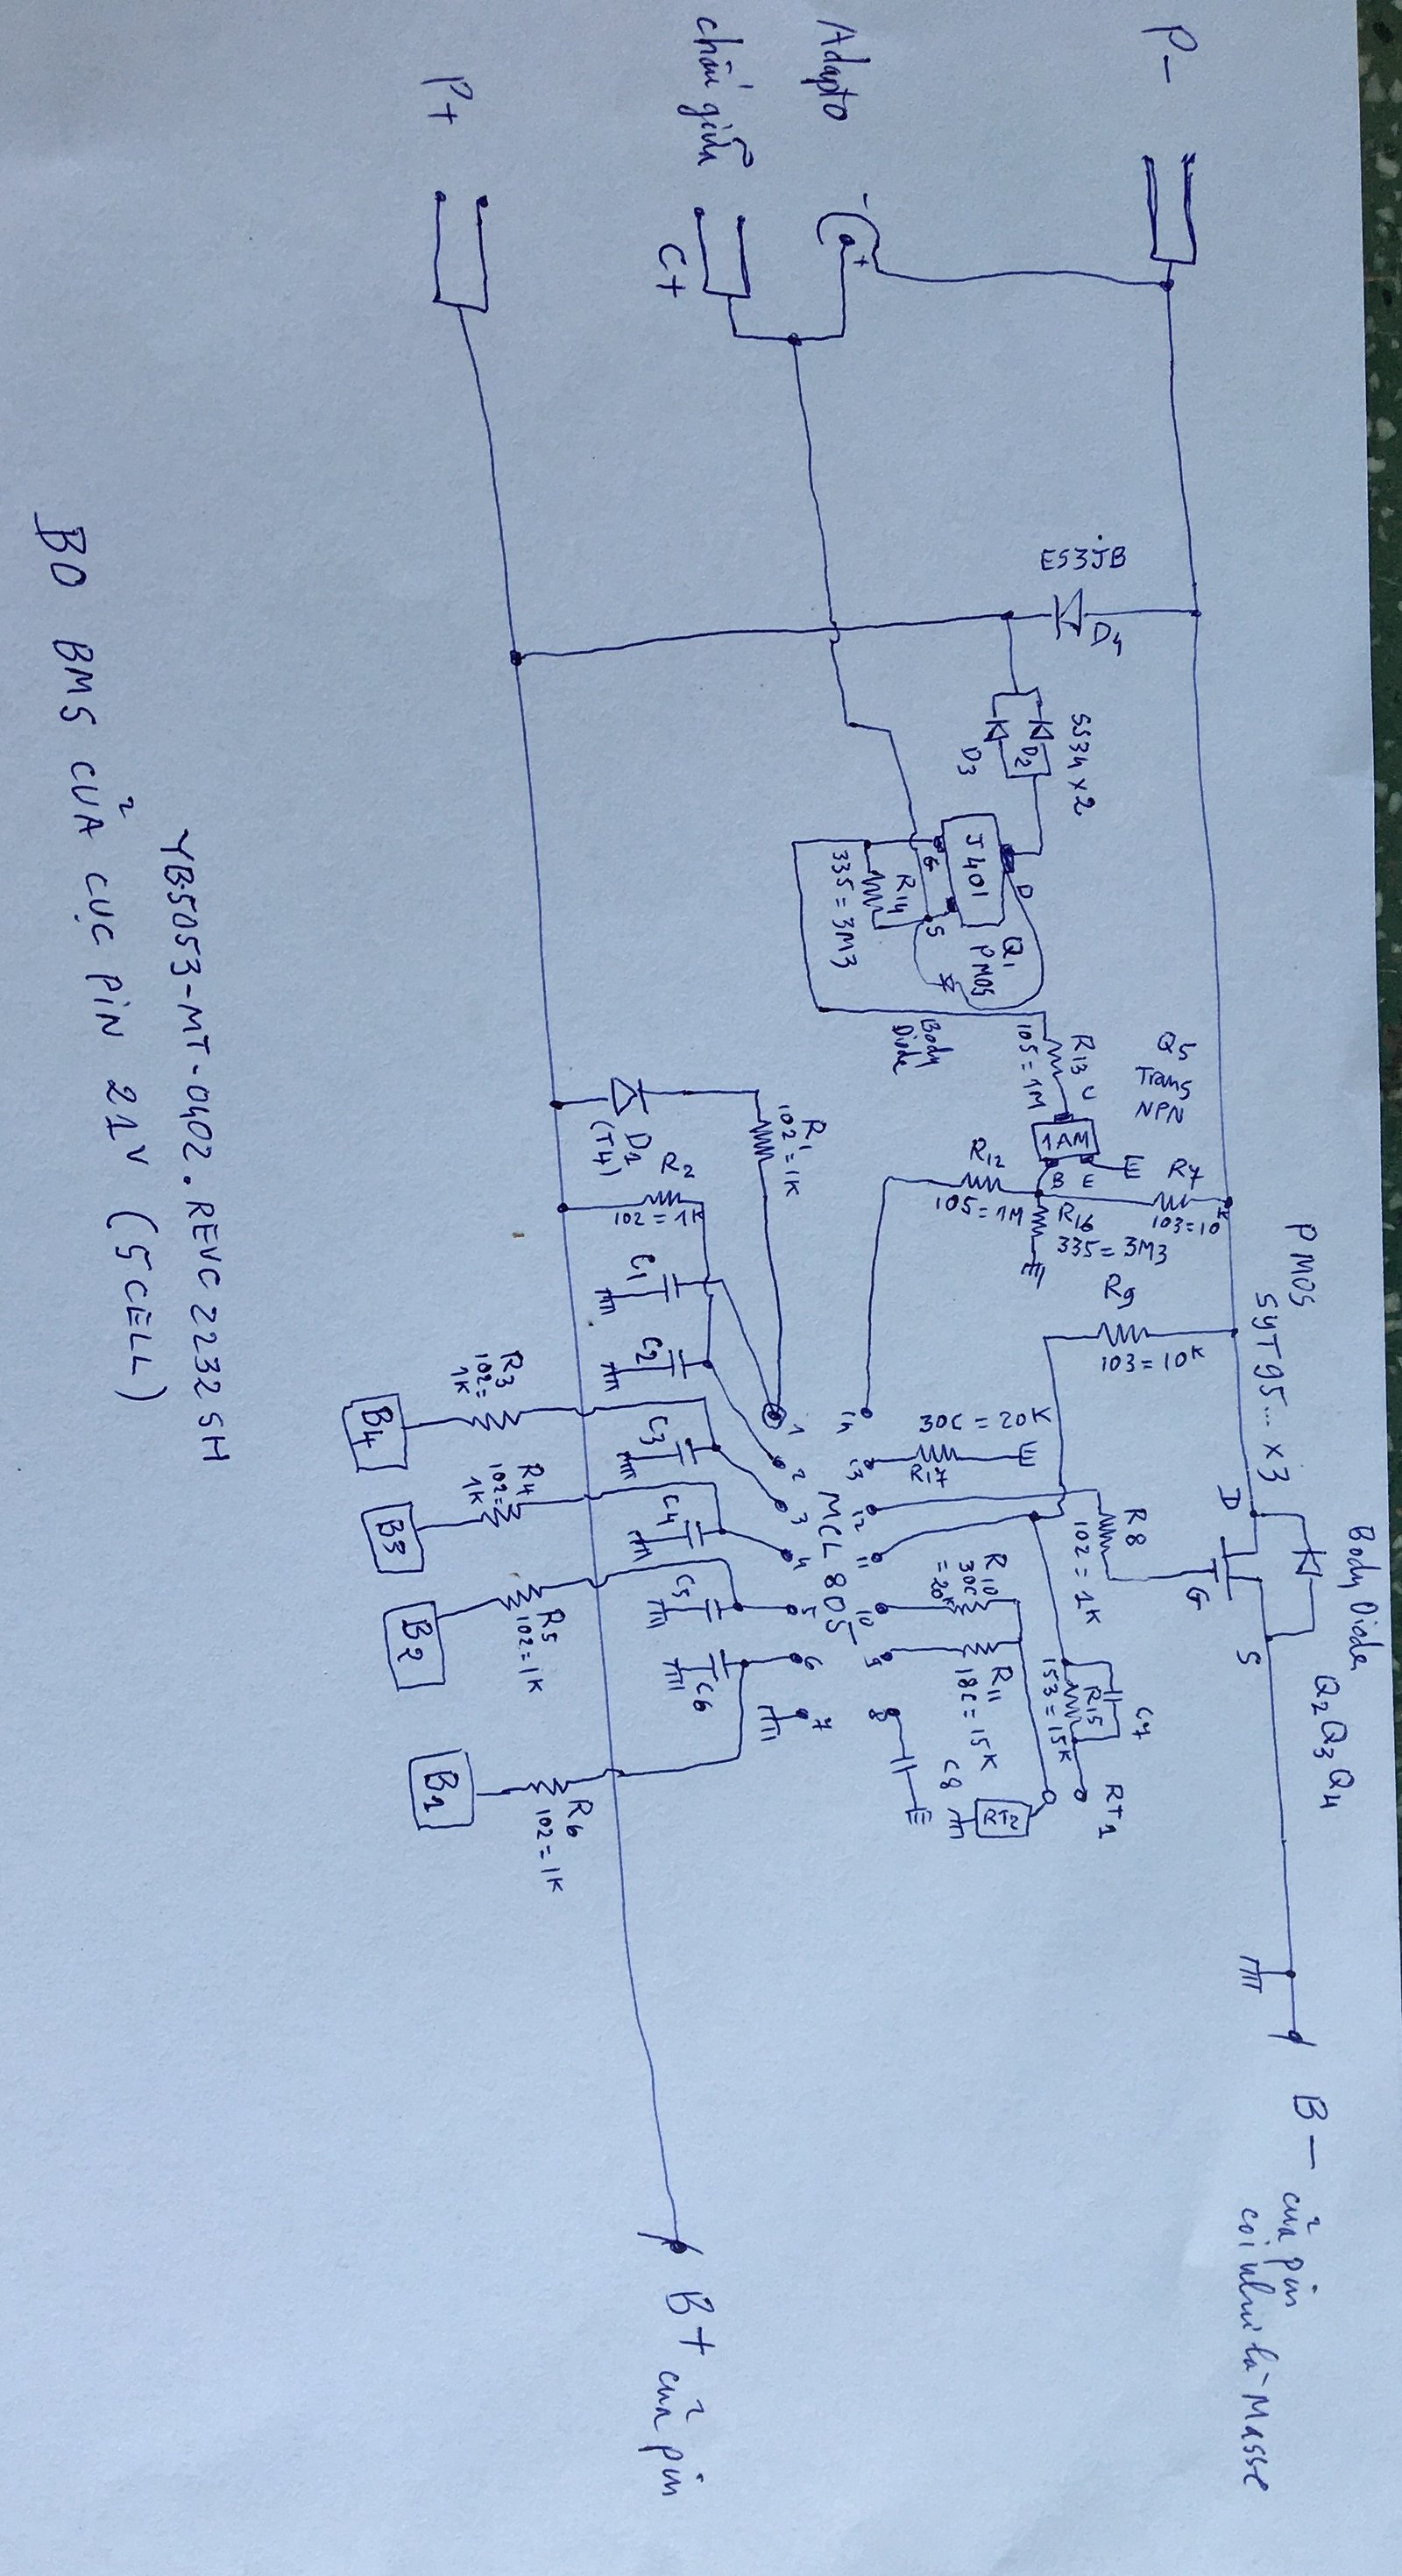 P-
Adapto
- +
chấu giữa
C+
P+
ES3JB
D4
SS34 x2
D2
D3
J401
D
G
S
Q1
PMOS
R14
335 = 3M3
Body
Diode
R13
105 = 1M
Q5
Trans
NPN
C
1AM
B E
R12
105 = 1M
R7
103 = 10K
R16
335 = 3M3
R9
103 = 10K
PMOS
SYT95... x3
D
G
S
Body Diode
Q2 Q3 Q4
B- của pin
coi như là Masse
D1
(T4)
R1
102 = 1K
R2
102 = 1K
C1
C2
C3
C4
C5
C6
1
2
3
4
5
6
7
MCL 805
14
13
12
11
10
9
8
30C = 20K
R17
R8
102 = 1K
R10
30C
= 20K
R11
18C = 15K
R15
153 = 15K
C7
C8
RT1
RT2
R3
102 =
1K
B4
R4
102 =
1K
B3
R5
102 = 1K
B2
R6
102 = 1K
B1
B+ của pin
YB5053-MT-0402.REVC2232SH
BO BMS CỦA CỤC PIN 21V (5CELL)